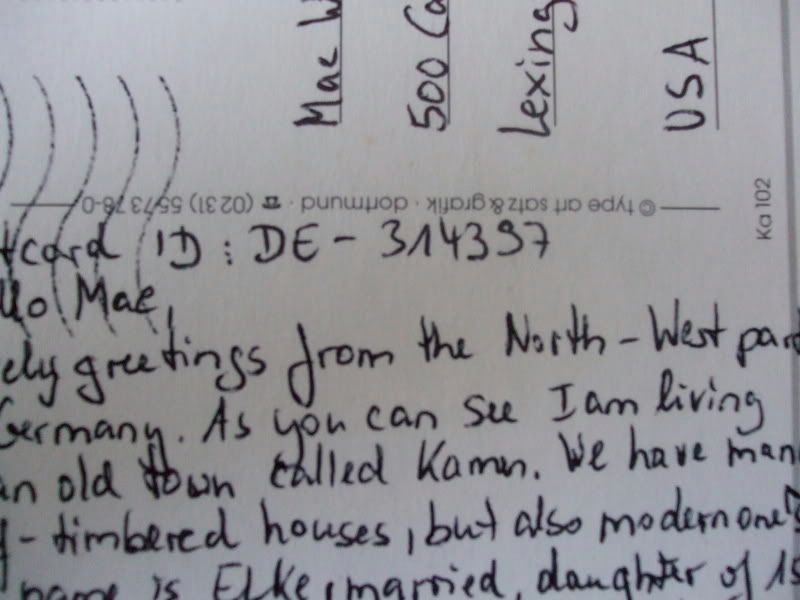 Mae W
500 Ca
Lexing
USA
© type art satz & grafik · dortmund · ☎ (02 31) 55 73 76-0
Ka 102
tcard ID: DE-314397
llo Mae,
ely greetings from the North-West part
Germany. As you can see I am living
an old town called Kamen. We have man
f-timbered houses, but also modern one's
name is Elke, married, daughter of 15